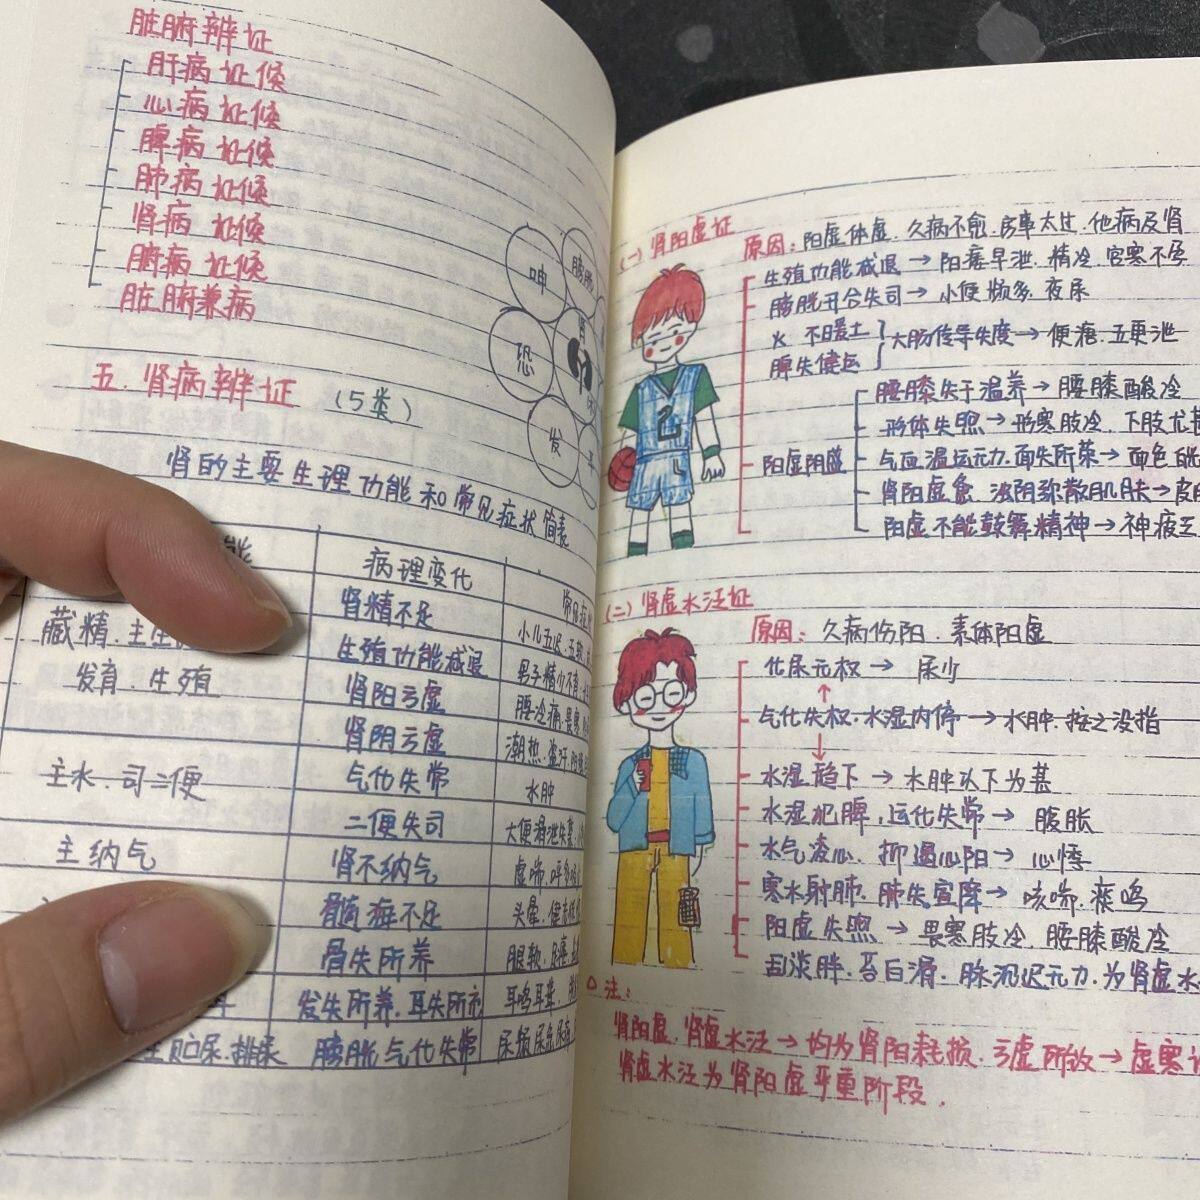 脏腑辨证
肝病证候
心病证候
脾病证候
肺病证候
肾病证候
腑病证候
脏腑兼病
呻
膀胱
恐
肾
发
五.肾病辨证（5类）
肾的主要生理功能和常见症状简表
能
病理变化
常见症
藏精.主生
发育.生殖
肾精不足
小儿五迟.五软
生殖功能减退
男子精少不育
肾阳亏虚
腰冷痛.畏寒
肾阴亏虚
潮热.盗汗
主水.司二便
气化失常
水肿
二便失司
大便滑泄失禁
主纳气
肾不纳气
虚喘
髓海不足
头晕.健忘
骨失所养
发失所养.耳失所
耳鸣耳聋
贮尿.排尿
膀胱气化失常
尿频尿急
(一)肾阳虚证
原因:阳虚体虚.久病不愈.房事太过.他病及肾
生殖功能减退→阳痿早泄.精冷.宫寒不孕
膀胱开合失司→小便频多.夜尿
火不暖土
脾失健运
大肠传导失度→便溏.五更泄
阳虚阴盛
腰膝失于温养→腰膝酸冷
形体失煦→形寒肢冷.下肢尤
气血温运无力.面失所荣→面色
肾阳虚惫.浊阴弥散肌肤→皮
阳虚不能鼓舞精神→神疲乏
(二)肾虚水泛证
原因:久病伤阳.素体阳虚
化尿无权→尿少
↑
气化失权.水湿内停→水肿.按之没指
↓
水湿趋下→水肿以下为甚
水湿犯脾,运化失常→腹胀
水气凌心.抑遏心阳→心悸
寒水射肺.肺失宣降→咳喘.痰鸣
阳虚失煦→畏寒肢冷.腰膝酸冷
舌淡胖.苔白滑.脉沉迟无力.为肾虚水
注:
肾阳虚.肾虚水泛→均为肾阳耗损.亏虚所致→虚寒
肾虚水泛为肾阳虚严重阶段.
2